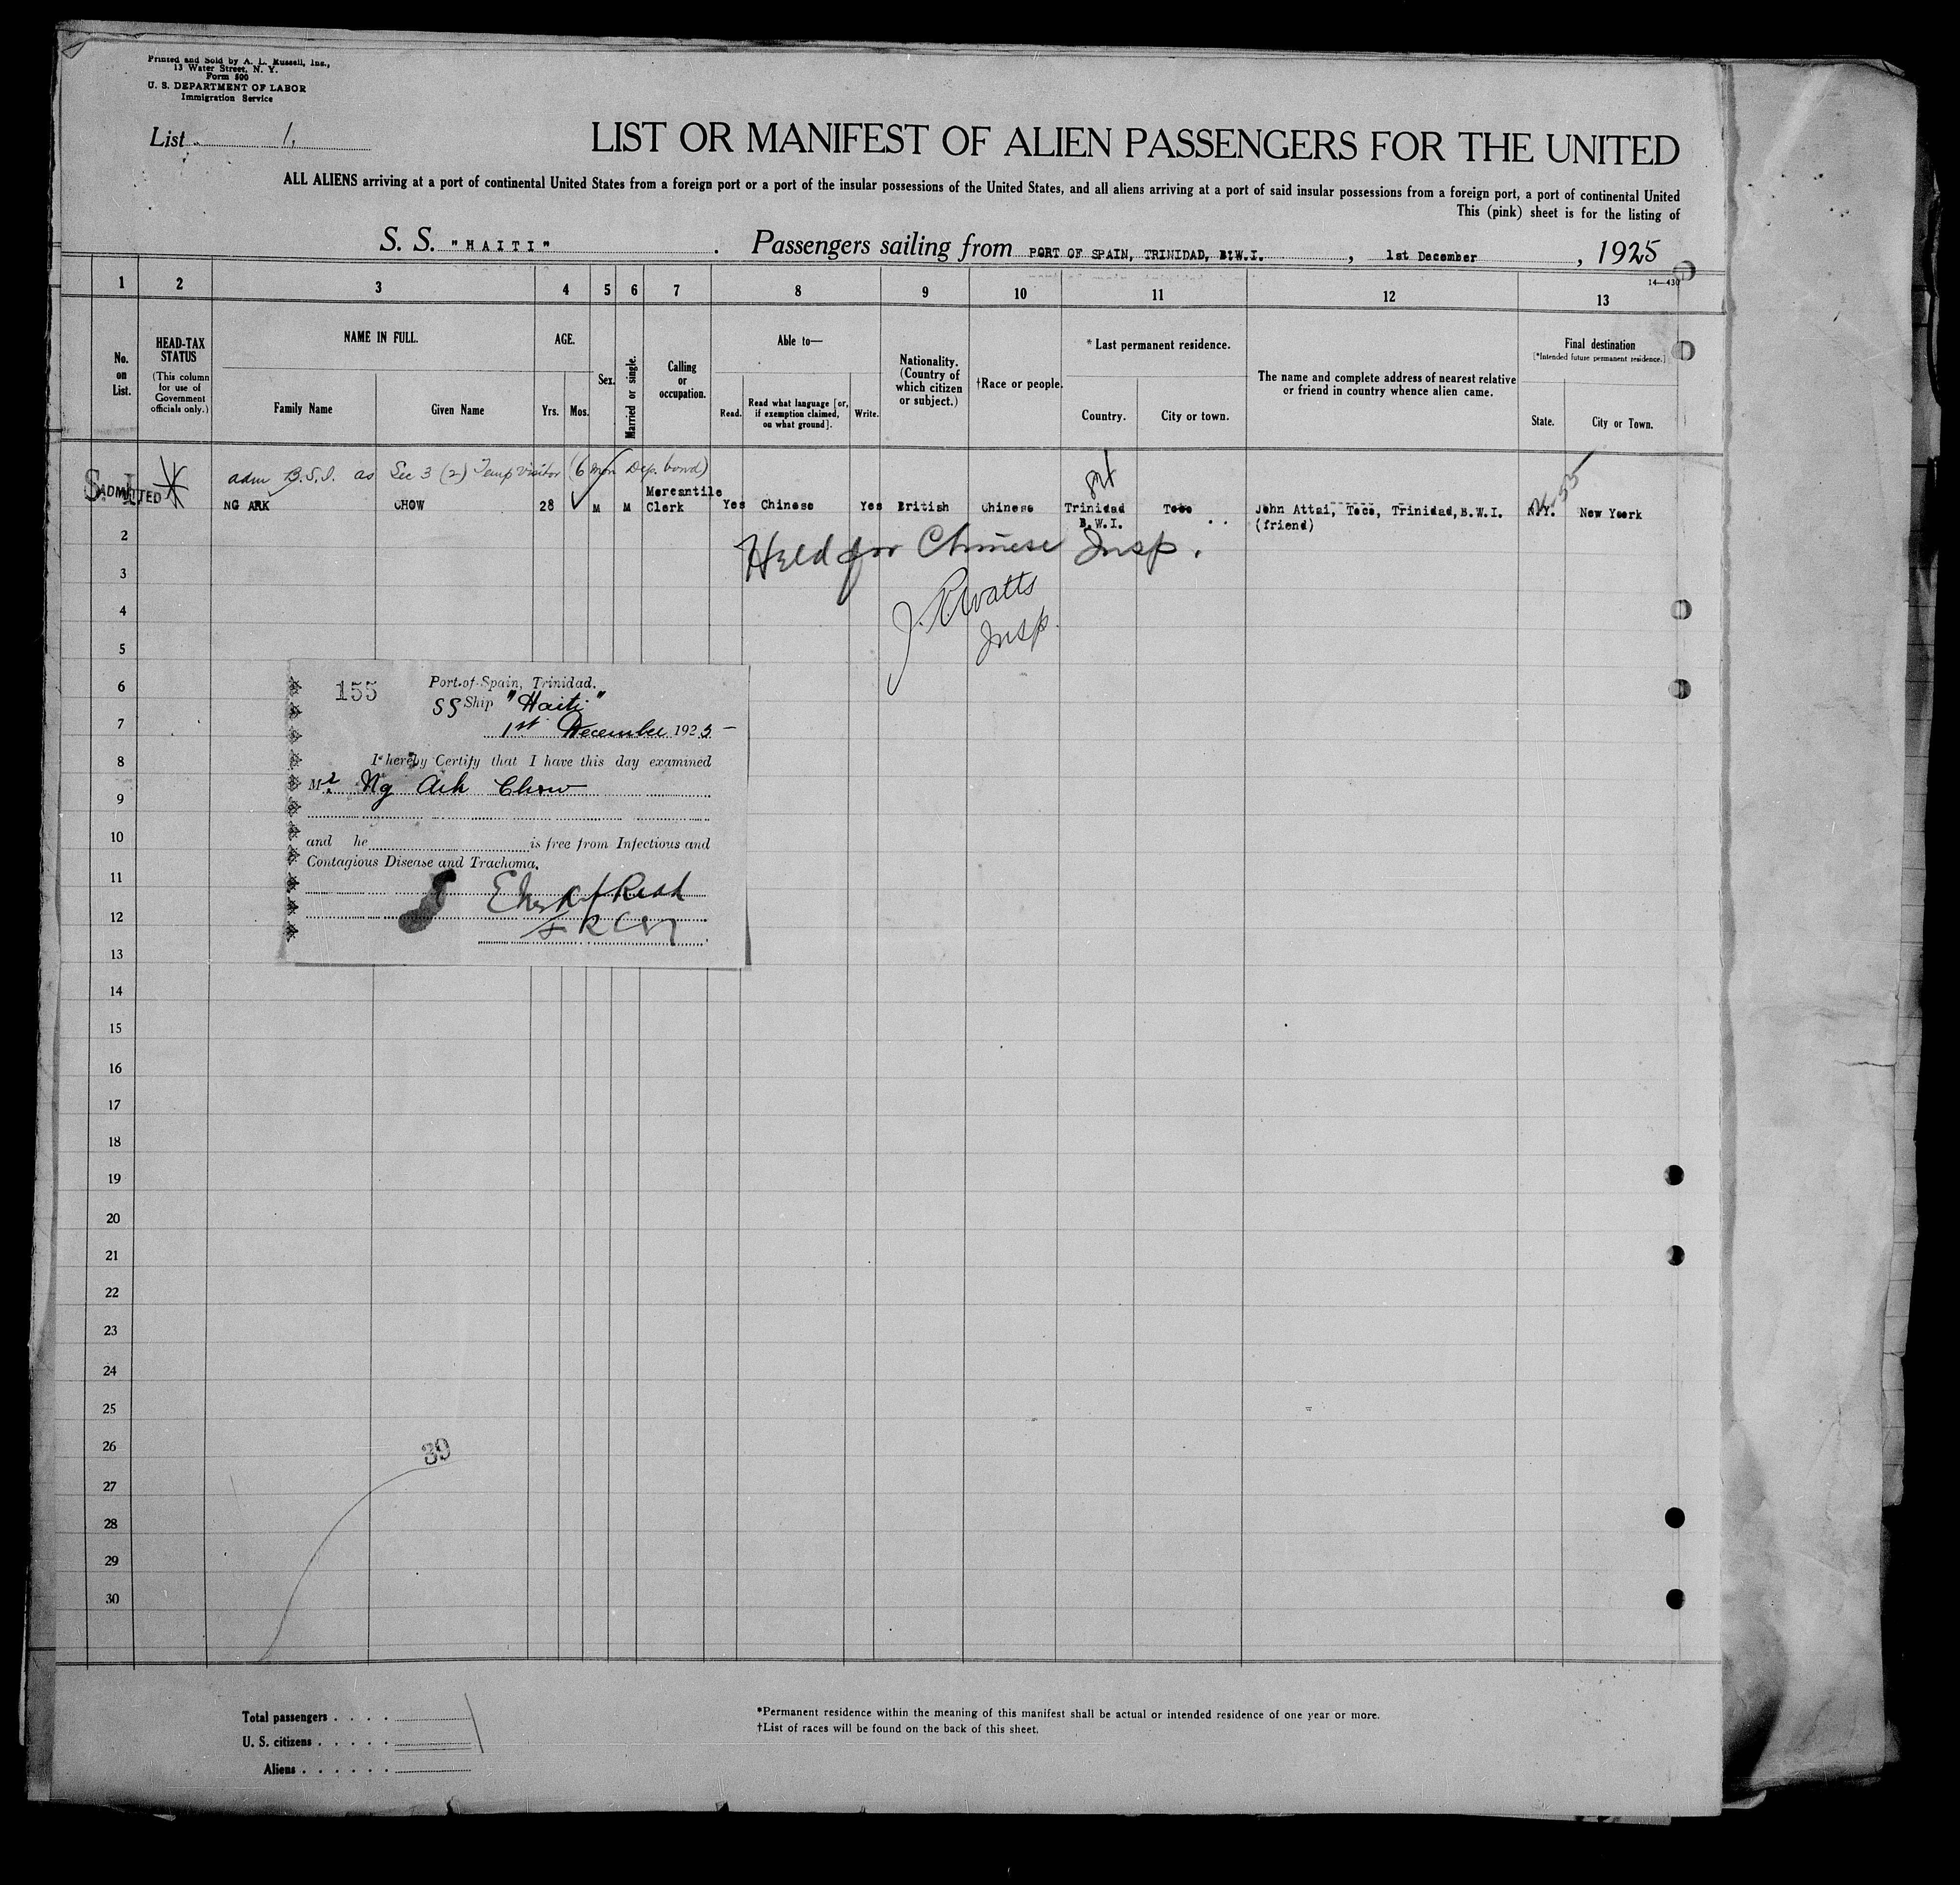 Printed and Sold by A. L. Russell, Inc.,
13 Water Street, N. Y.
Form 500
U. S. DEPARTMENT OF LABOR
Immigration Service
List 1.
LIST OR MANIFEST OF ALIEN PASSENGERS FOR THE UNITED
ALL ALIENS arriving at a port of continental United States from a foreign port or a port of the insular possessions of the United States, and all aliens arriving at a port of said insular possessions from a foreign port, a port of continental United
This (pink) sheet is for the listing of
S. S. "HAITI" . Passengers sailing from PORT OF SPAIN, TRINIDAD, B.W.I. , 1st December , 1925
14—430
1 2 3 4 5 6 7 8 9 10 11 12 13
No. on List.
HEAD-TAX STATUS (This column for use of Government officials only.)
NAME IN FULL.
Family Name
Given Name
AGE.
Yrs.
Mos.
Sex.
Married or single.
Calling or occupation.
Able to—
Read.
Read what language [or, if exemption claimed, on what ground].
Write.
Nationality. (Country of which citizen or subject.)
†Race or people.
*Last permanent residence.
Country.
City or town.
The name and complete address of nearest relative or friend in country whence alien came.
Final destination
[*Intended future permanent residence.]
State.
City or Town.
adm B.S.I. as Sec 3 (2) Temp Visitor (6 mon Dep. bond)
ADMITTED
NG ARK CHOW 28 M M Mercantile Clerk Yes Chinese Yes British Chinese Trinidad B.W.I. Toco John Attai, Toco, Trinidad, B.W.I. (friend) N.Y. New Yoerk
Held for Chinese Insp.
J. R. Watts
Insp.
155
Port-of-Spain, Trinidad.
SS Ship "Haiti"
1st December 1925
I hereby Certify that I have this day examined
Mr. Ng Ark Chow
and he is free from Infectious and
Contagious Disease and Trachoma.
2
3
4
5
6
7
8
9
10
11
12
13
14
15
16
17
18
19
20
21
22
23
24
25
26
39
27
28
29
30
Total passengers . . . .
U. S. citizens . . . . .
Aliens . . . . . .
*Permanent residence within the meaning of this manifest shall be actual or intended residence of one year or more.
†List of races will be found on the back of this sheet.